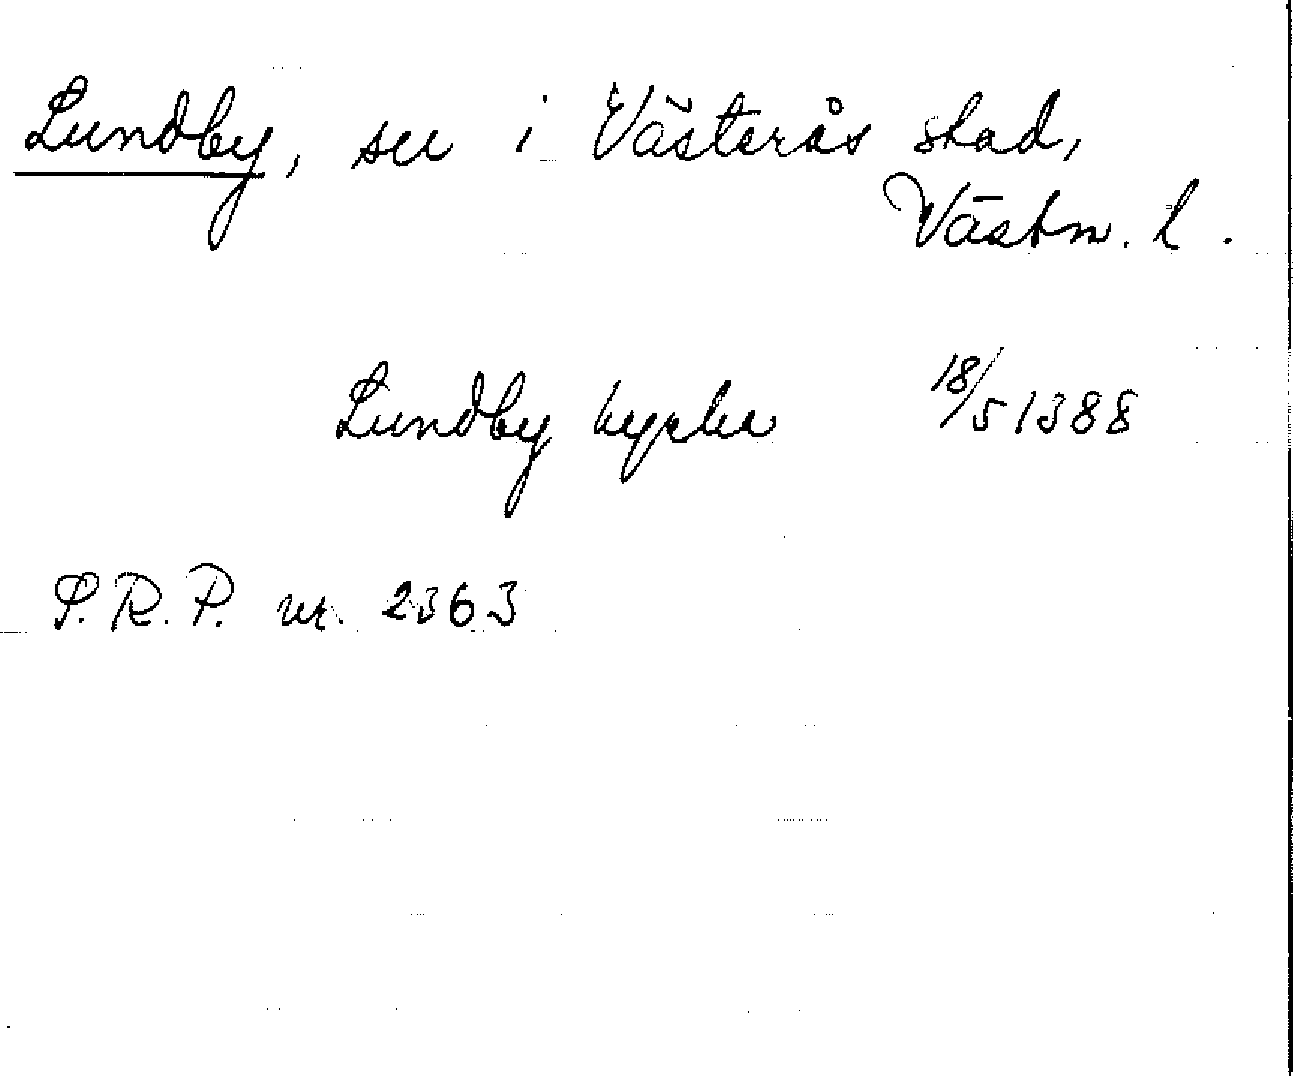 Lundby, sn i Västerås stad,
Västm. l.
Lundby kyrka 18/5 1388
S.R.P. nr. 2363